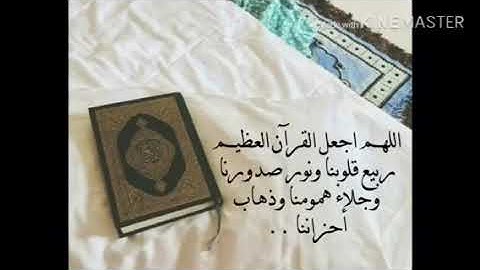 Made with KINEMASTER
اللهم اجعل القرآن العظيم
ربيع قلوبنا ونور صدورنا
وجلاء همومنا وذهاب
أحزاننا . .